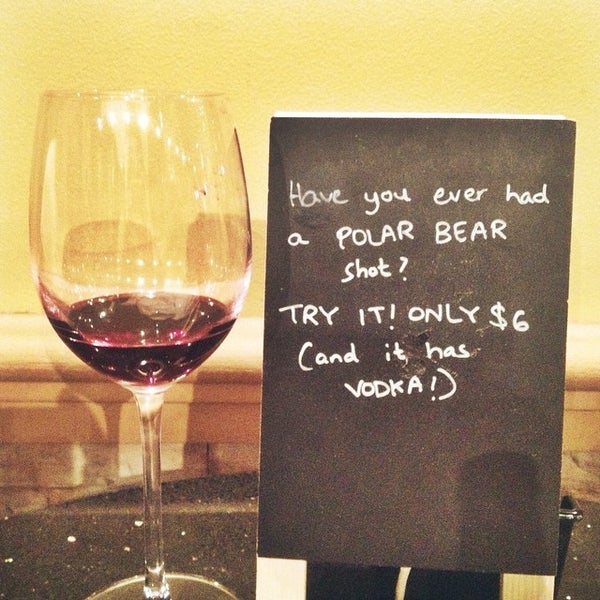 Have you ever had
a POLAR BEAR
shot?
TRY IT! ONLY $6
(and it has
VODKA!)